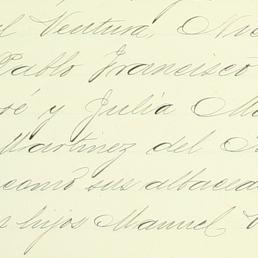 Ventura,
Pablo Francisco
y Julia
Martinez del
como sus albacea
hijos Manuel